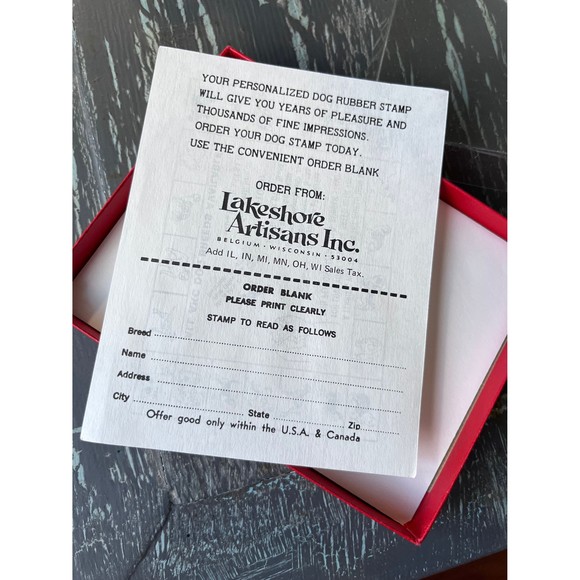 YOUR PERSONALIZED DOG RUBBER STAMP
WILL GIVE YOU YEARS OF PLEASURE AND
THOUSANDS OF FINE IMPRESSIONS.
ORDER YOUR DOG STAMP TODAY.
USE THE CONVENIENT ORDER BLANK
ORDER FROM:
Lakeshore
Artisans Inc.
BELGIUM • WISCONSIN • 53004
Add IL, IN, MI, MN, OH, WI Sales Tax.
ORDER BLANK
PLEASE PRINT CLEARLY
STAMP TO READ AS FOLLOWS
Breed
Name
Address
City State Zip
Offer good only within the U.S.A. & Canada